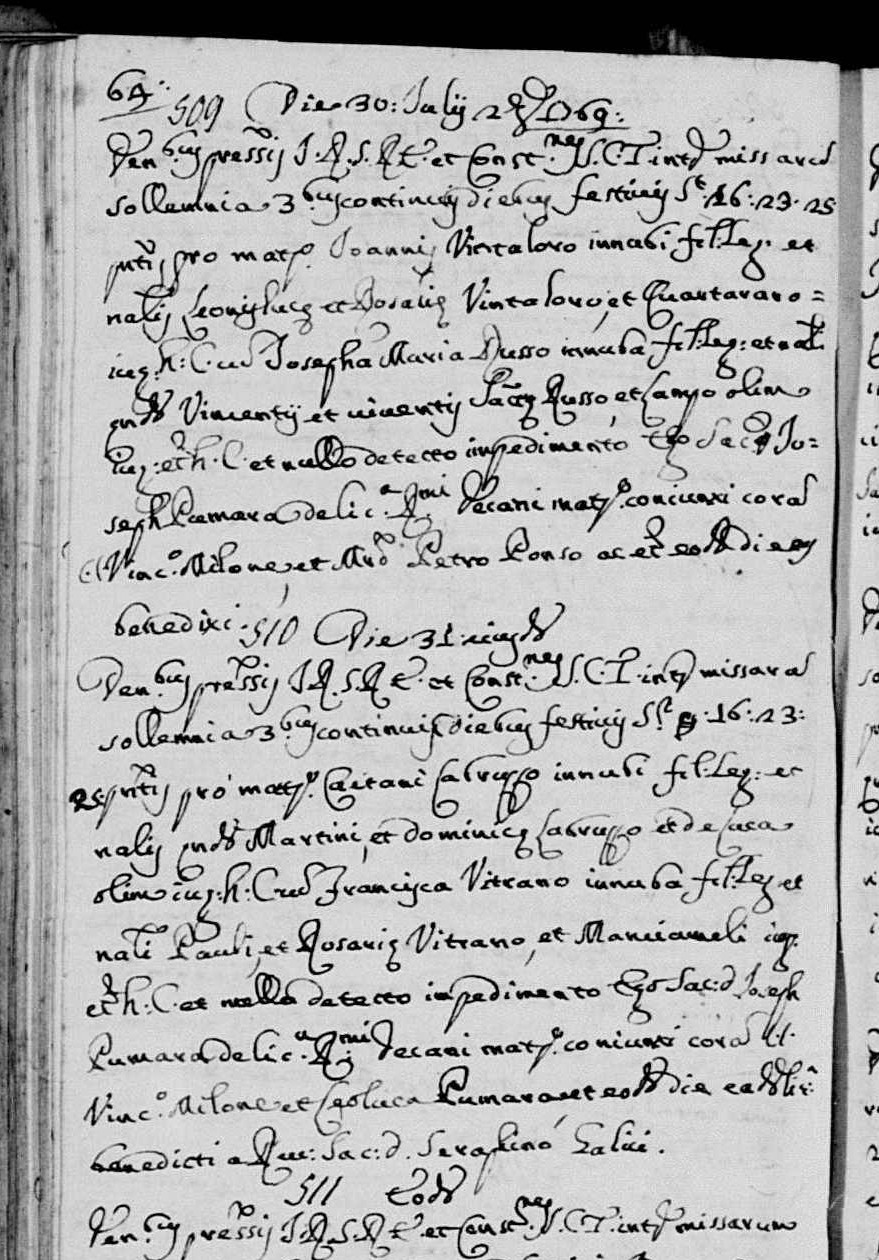 64. 509 Die 30: Julij 1769:
Den.bus pressis J. R. S. R E. et Const.nes S. C. T. int missarũ
sollemnia 3.bus continuis diebus festivis St. 16: 23: 25
pntis pro matr. Joannis Vintaloro innubi fil: Leg: et
nalis Leonis Lucæ et Rosariæ Vintaloro, et Quartararo =
iug: h: C. cu Josepha Maria Russo innuba fil: Leg: et nal
qndã Vincentij et viventis Russo et Campo olim
iug: et h. C. et nullo detecto impedimento Ego Sac. Jo=
seph Pumara de lic.a R.mi Decani matr. coniunxi corã
Cl. Vinc.o Milone, et Petro Ponso ac eod die eos
benedixi. 510 Die 31 eiusd
Den.bus pressis J. R. S. R E. et Const.nes S. C. T. int missarũ
sollemnia 3.bus continuis diebus festivis St. 16: 23:
25 pntis pro matr. Caitani Cabruzzo innubi fil: Leg: et
nalis qnd Martini, et Dominicæ Cabruzzo et de Luca
olim iug: h: C. cu Francisca Vitrano innuba fil: Leg et
nali Pauli, et Rosariæ Vitrano, et Manciameli iug.
et h: C. et nullo detecto impedimento Ego Sac: d. Joseph
Pumara de lic.a R.mi Decani matr. coniunxi corã Cl.
Vinc.o Milone et Leoluca Pumara et eod die
benedicti a Rev: Sac: d. Seraphino Galici.
511 Eod
Den.bus pressis J. R. S. R E. et Const.nes S. C. T. int missarum